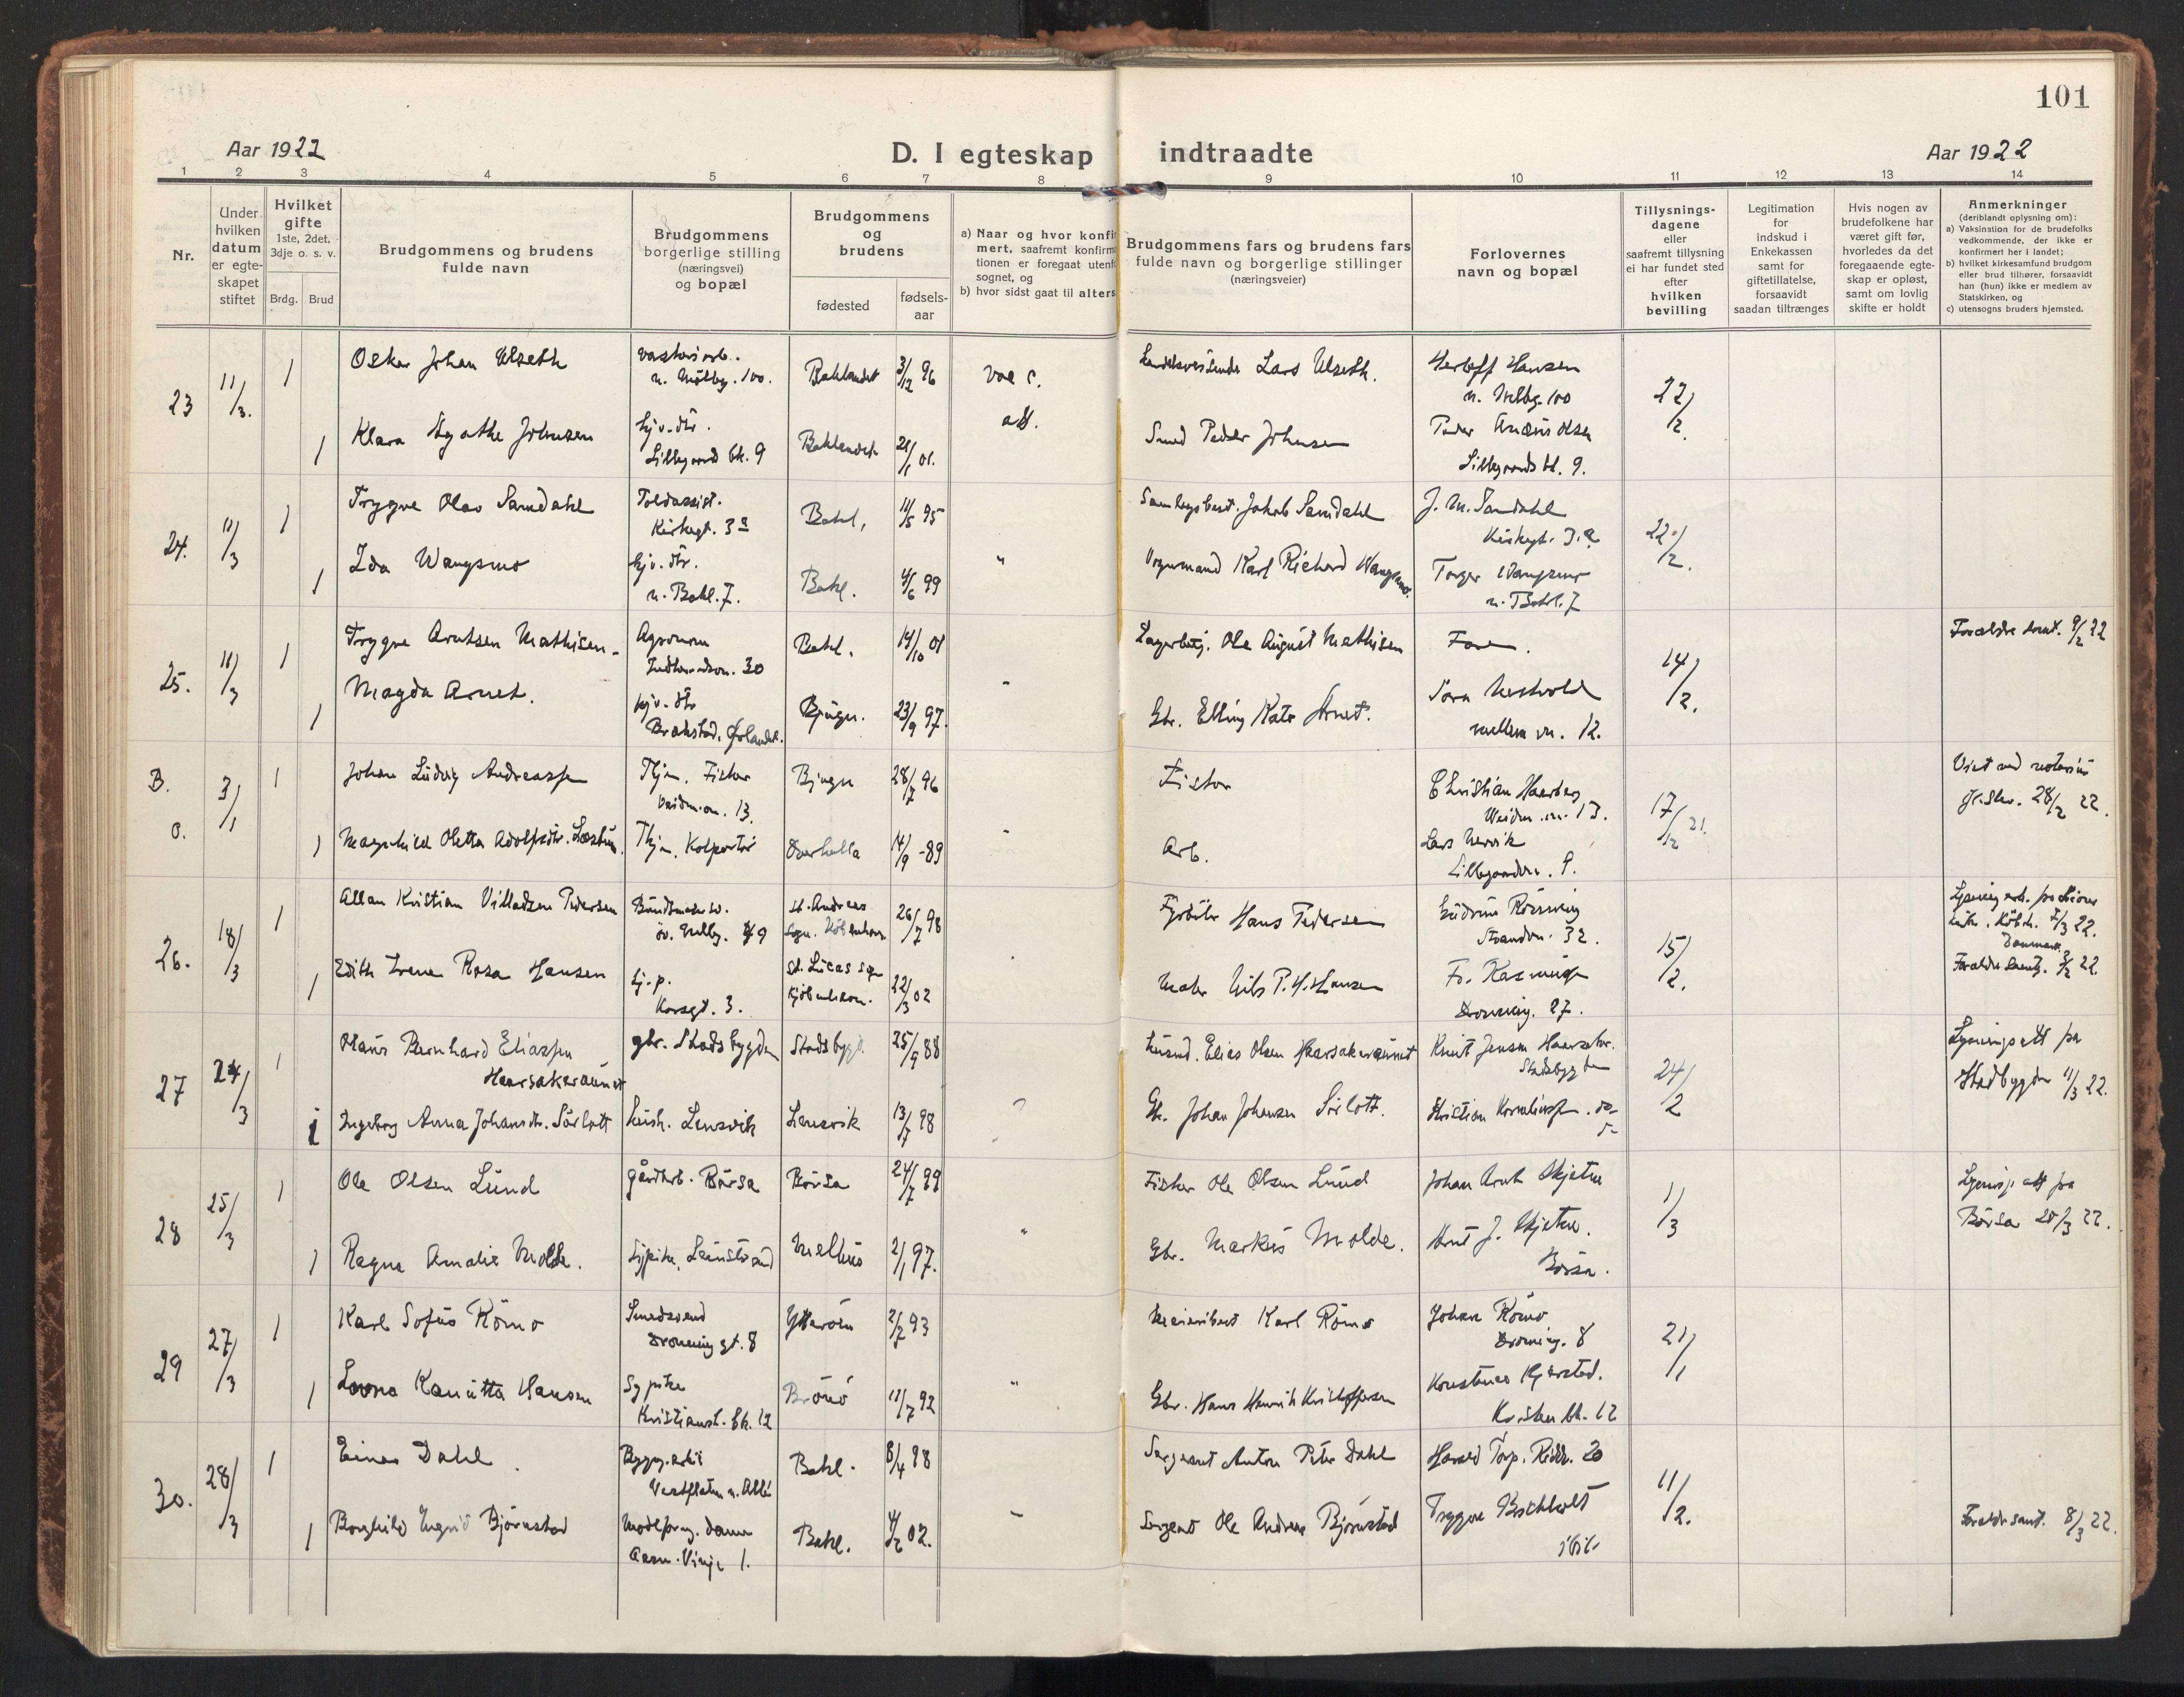 101
Aar 1922
D. I egteskap indtraadte
Aar 1922
1 2 3 4 5 6 7 8 9 10 11 12 13 14
Nr.
Under
hvilken
datum
er egte-
skapet
stiftet
Hvilket
gifte
1ste, 2det,
3dje o. s. v.
Brdg. Brud
Brudgommens og brudens
fulde navn
Brudgommens
borgerlige stilling
(næringsvei)
og bopæl
Brudgommens
og
brudens
fødested
fødsels-
aar
a) Naar og hvor konfir
mert, saafremt konfirm
tionen er foregaat utenf
sognet, og
b) hvor sidst gaat til alters
Brudgommens fars og brudens fars
fulde navn og borgerlige stillinger
(næringsveier)
Forlovernes
navn og bopæl
Tillysnings-
dagene
eller
saafremt tillysning
ei har fundet sted
efter
hvilken
bevilling
Legitimation
for
indskud i
Enkekassen
samt for
giftetillatelse,
forsaavidt
saadan tiltrænges
Hvis nogen av
brudefolkene har
været gift før,
hvorledes da det
foregaaende egte-
skap er opløst,
samt om lovlig
skifte er holdt
Anmerkninger
(deriblandt oplysning om):
a) Vaksination for de brudefolks
vedkommende, der ikke er
konfirmert her i landet;
b) hvilket kirkesamfund brudgom
eller brud tilhører, forsaavidt
han (hun) ikke er medlem av
Statskirken, og
c) utensogns bruders hjemsted.
23
11/3.
1
Oskar Johan Ulseth
n. Möllbg. 100.
Baklandet
3/12 96
vac c.
Lars Ulseth.
Herloff Hansen
n. Mellbg. 100
22/2.
1
Klara Agathe Johnsen
hj. v. dtr.
Lillegaard bk. 9
Baklandet
21/1 01.
att.
Smed Peder Johnsen
Peder Olsen
Lillegaards bk. 9.
24.
11/3
1
Trygve Olav Samdahl
Toldassist.
Kirkegt. 3a
Bakl.
11/5 95
Jakob Samdahl
J. M. Samdahl
Kirkegt. 3.a
22/2.
1
Ida Wangsmo
hj. v. dtr.
n. Bakl. 7.
Bakl.
4/6 99
"
Vognmand Karl Richard Wangsmo.
Torger Wangsmo
n. Bakl. 7
25.
11/3
1
Trygve Arntsen Mathisen
Agronom
Bakl.
14/10 01
Ole August Mathisen
Faren.
14/2.
Forældre samt. 9/2 22
1
Magda Arnet.
hj. v. dtr
Brækstad, Ørlandet.
Bjugn.
23/9 97.
"
Gbr. Elling Arnet.
12.
B.
o.
3/1
1
Johan Ludvig Andreassen
Thjm. Fisker
13.
Bjugn
28/7 96
Fisker
Christian Haarberg
13.
17/12 21.
Viet ved notarius
28/2 22.
1
Magnhild Oletta Adolfsdtr.
Thjm. Kolportør
Overhalla
14/9 -89
"
Arb.
Lars
9.
26.
18/3
1
Allan Kristian Villadsen Pedersen
St. Andreas
Sogn. Köbenhavn
26/7 98
Fyrbøter Hans Pedersen
Gudrun Rönning
Strandvn. 32.
15/2.
Köbh. 7/3 22.
Danmark
Forældre samt. 22.
1
Edith Irene Rosa Hansen
hj. p.
Korsgt. 3.
St. Lucas sogn
Kjöbenhavn.
22/3 02
Maler Nils P. H. Hansen
Dronning. 27.
27
24/3
1
Olaus Bernhard Eliassen
Haarsakeraunet
gbr. Stadsbygden
Stadsbygd.
25/9 88
Elias Olsen Haarsakeraunet
Knut Jensen
Stadsbygden
24/2
Lysningsatt fra
Stadbygden 11/3 22.
1
Ingeborg Anna Johansdtr. Sörlott
hush. Lensvik
Lensvik
13/7 98
?
Gbr. Johan Johansen Sörlott.
Kristian Korneliussen. do
28
25/3
1
Ole Olsen Lund
gårdarb. Börsa
Börsa
24/7 99
Fisker Ole Olsen Lund
Johan Arnt Skjetne
1/3
Lysningsatt fra
Börsa 20/3 22.
1
Ragna Amalie Molde.
Sypike, Leinstrand
Melhus
2/1 97.
"
Gbr. Markus Molde.
Arnt J. Skjetne.
Börsa.
29
27/3
1
Karl Sofus Römo
Smedsvend
Dronning gt. 8
Ytterøen
2/7 93
Meieribest. Karl Römo
Johan Römo
Dronning. 8
21/1
1
Lovna Kanutta Hansen
Sypike
Kristianst. bk. 12
Brönö
11/7 92
"
Gbr. Hans Henrik Kristoffersen
Konstanse Kjærstad.
Kristian bk. 12
30.
28/3
1
Einar Dahl.
Vestplaten n. Allé
Bakl.
8/4 98
Sergeant Anton Peter Dahl
Harald Torp. 20
11/2.
1
Borghild Ingrid Björnstad
Aasm. Vinje 1.
Bakl.
4/2 02.
"
Sergent Ole Andreas Björnstad
Trygve Bochholt
ibid.
Forældre samt. 8/3 22.